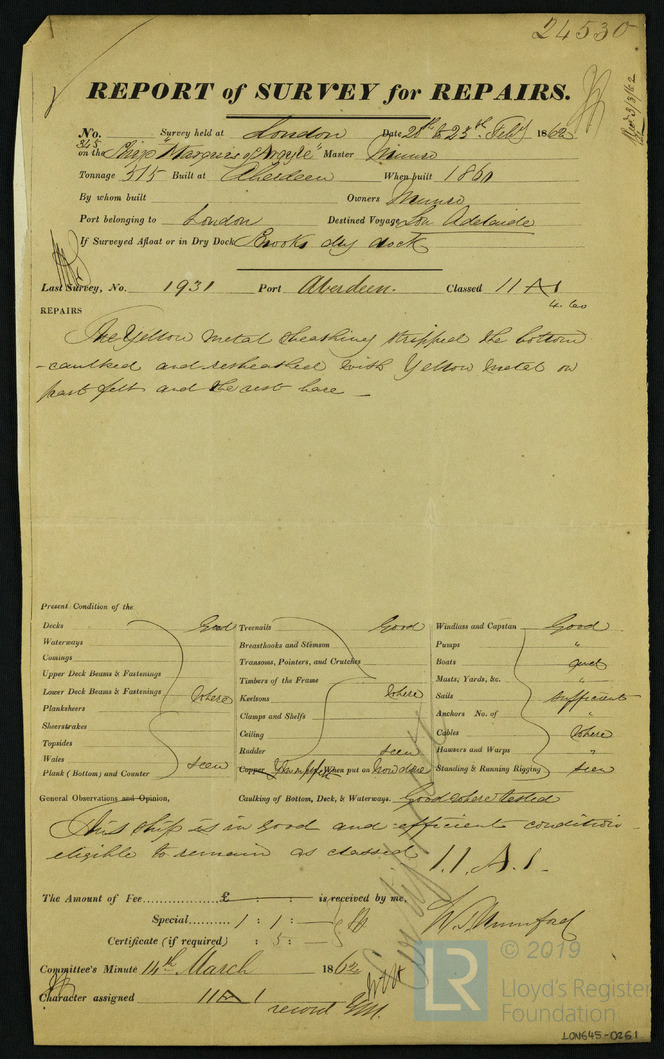 24530
REPORT of SURVEY for REPAIRS.
No. 345 Survey held at London Date 20th to 25th Feby 1862
on the Ship "Marquis of Argyle" Master Munro
Tonnage 515 Built at Aberdeen When built 1860
By whom built Owners Munro
Port belonging to London Destined Voyage Lon Adelaide
If Surveyed Afloat or in Dry Dock Brooks dry dock
Last Survey, No. 1931 Port Aberdeen. Classed 11 A1
4.60
REPAIRS
The Yellow metal sheathing stripped the bottom
caulked and resheathed with Yellow metal on
part felt and the rest bare
Present Condition of the
Decks Good Treenails Good Windlass and Capstan Good
Waterways Breasthooks and Stemson Pumps "
Comings Transoms, Pointers, and Crutches Boats good
Upper Deck Beams & Fastenings Timbers of the Frame Masts, Yards, &c. "
Lower Deck Beams & Fastenings where Keelsons where Sails sufficient
Planksheers Clamps and Shelfs Anchors No. of "
Sheerstrakes Ceiling Cables where
Topsides Rudder seen Hawsers and Warps "
Wales seen Copper When put on Now done Standing & Running Rigging seen
Plank (Bottom) and Counter
General Observations and Opinion, Caulking of Bottom, Deck, & Waterways. Good where tested
This ship is in good and efficient condition
eligible to remain as classed 11.A.1.
The Amount of Fee £ : : is received by me,
Special 1 : 1 : —
Certificate (if required) : 5 : —
Committee's Minute 14th March 1862
Character assigned 11 A 1
record YM.
© 2019
LR
Lloyd's Register
Foundation
LON645-0261